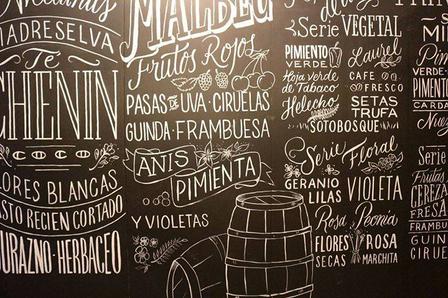 MADRESELVA
Té
CHENIN
COCO
FLORES BLANCAS
PASTO RECIEN CORTADO
DURAZNO · HERBACEO
MALBEC
Frutos Rojos
PASAS DE UVA · CIRUELAS
GUINDA · FRAMBUESA
ANIS
PIMIENTA
Y VIOLETAS
Serie VEGETAL
PIMIENTO
VERDE
Hoja verde
de Tabaco
Helecho
Laurel
CAFE
FRESCO
SETAS
TRUFA
SOTOBOSQUE
Serie Floral
GERANIO
LILAS
VIOLETA
Rosa Peonia
FLORES
SECAS
ROSA
MARCHITA
PIMIENTO
VERDE
PIMENTO
Serie
Frutas
CEREZA
FRESA
FRAMBU
GUIND
CIRUE